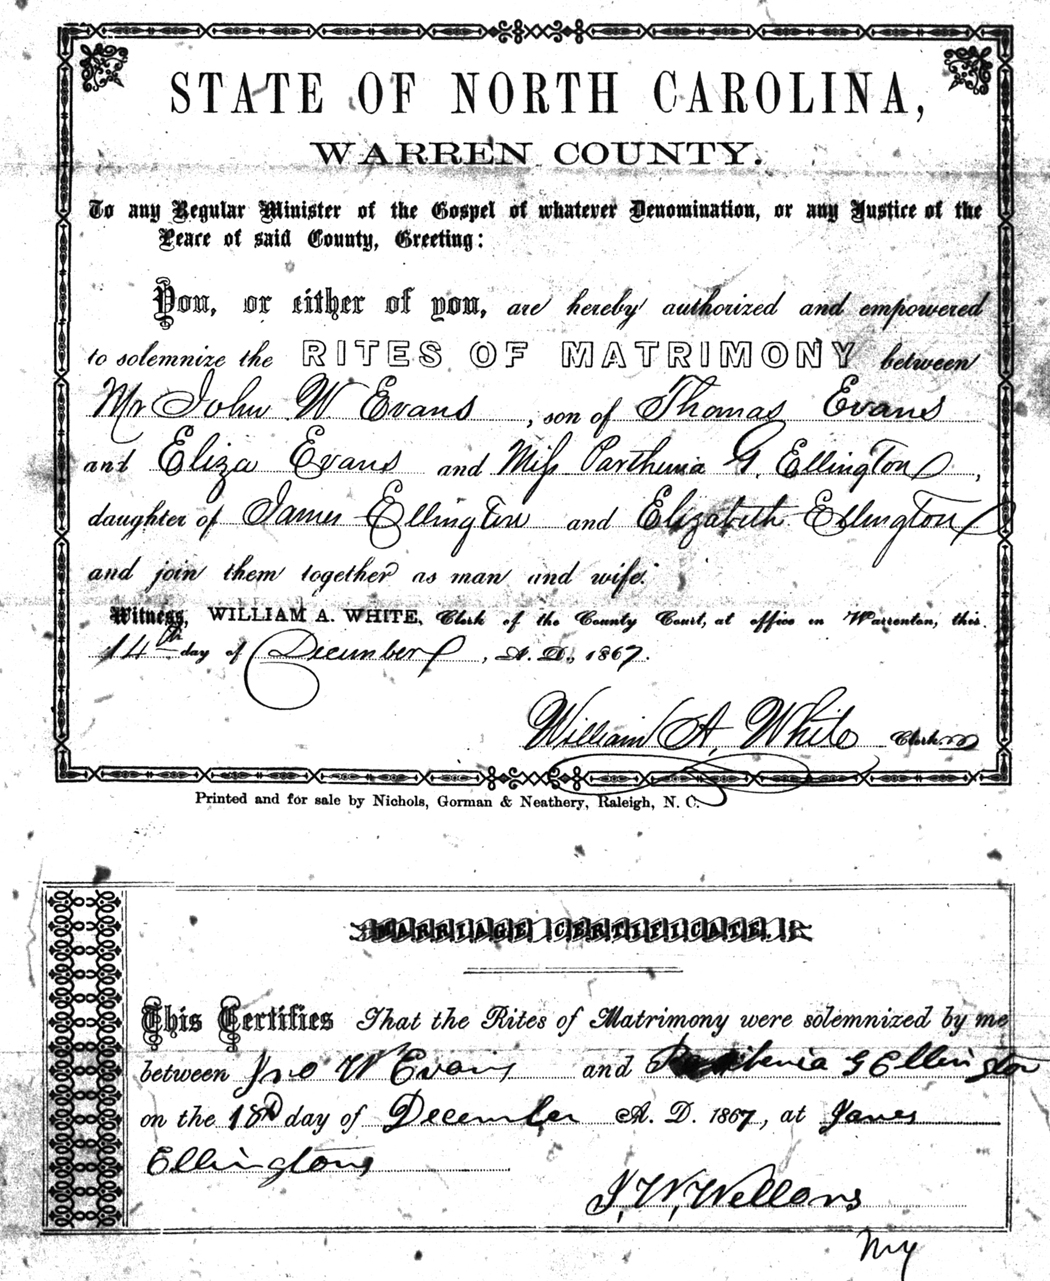 STATE OF NORTH CAROLINA,
WARREN COUNTY.
To any Regular Minister of the Gospel of whatever Denomination, or any Justice of the
Peace of said County, Greeting:
You, or either of you, are hereby authorized and empowered
to solemnize the RITES OF MATRIMONY between
Mr John W Evans, son of Thomas Evans
and Eliza Evans and Miss Parthenia G. Ellington,
daughter of James Ellington and Elizabeth Ellington
and join them together as man and wife.
Witness, WILLIAM A. WHITE, Clerk of the County Court, at office in Warrenton, this
14th day of December, A. D., 1867.
William A. White Clerk
Printed and for sale by Nichols, Gorman & Neathery, Raleigh, N. C.
MARRIAGE CERTIFICATE.
This Certifies That the Rites of Matrimony were solemnized by me
between Jno W Evans and Parthenia G Ellington
on the 18 day of December A. D. 1867, at James
Ellingtons
J. W. Wellons